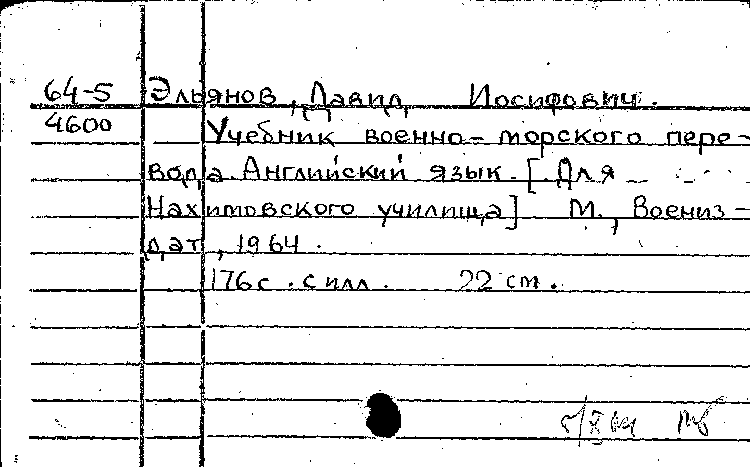 64-5 Эльянов, Давид Иосифович.
4600 Учебник военно-морского пере-
вода. Английский язык. [Для
Нахимовского училища] М., Воениз-
дат, 1964.
176 с. с илл. 22 cm.